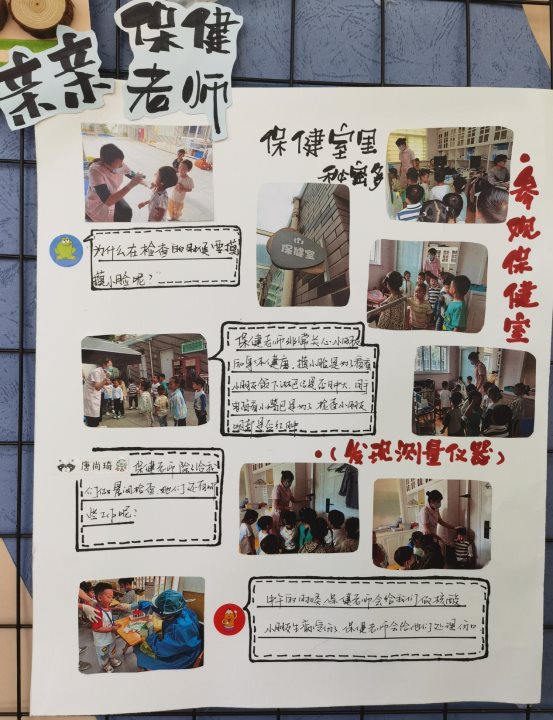 亲亲 保健
老师
保健室里
秘密多
•参观保健室
保健室
为什么在检查的时候要摸
摸小脸呢？
保健老师非常关心小朋友
的身体健康，摸小脸是为了检查
小朋友的下淋巴结是否肿大，用手
电筒看小嘴巴是为了检查小朋友
咽部是否红肿
•（发现测量仪器）
唐尚琦 保健老师除了给我
们做晨间检查，她们还有哪
些工作呢？
中午的时候保健老师会给我们做核酸
小朋友生病受伤了保健老师会给他们处理伤口